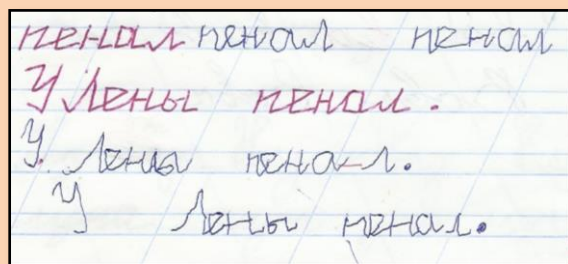 пенал пенал пенал
У Лены пенал.
У. Лены пенал.
У Лены пенал.